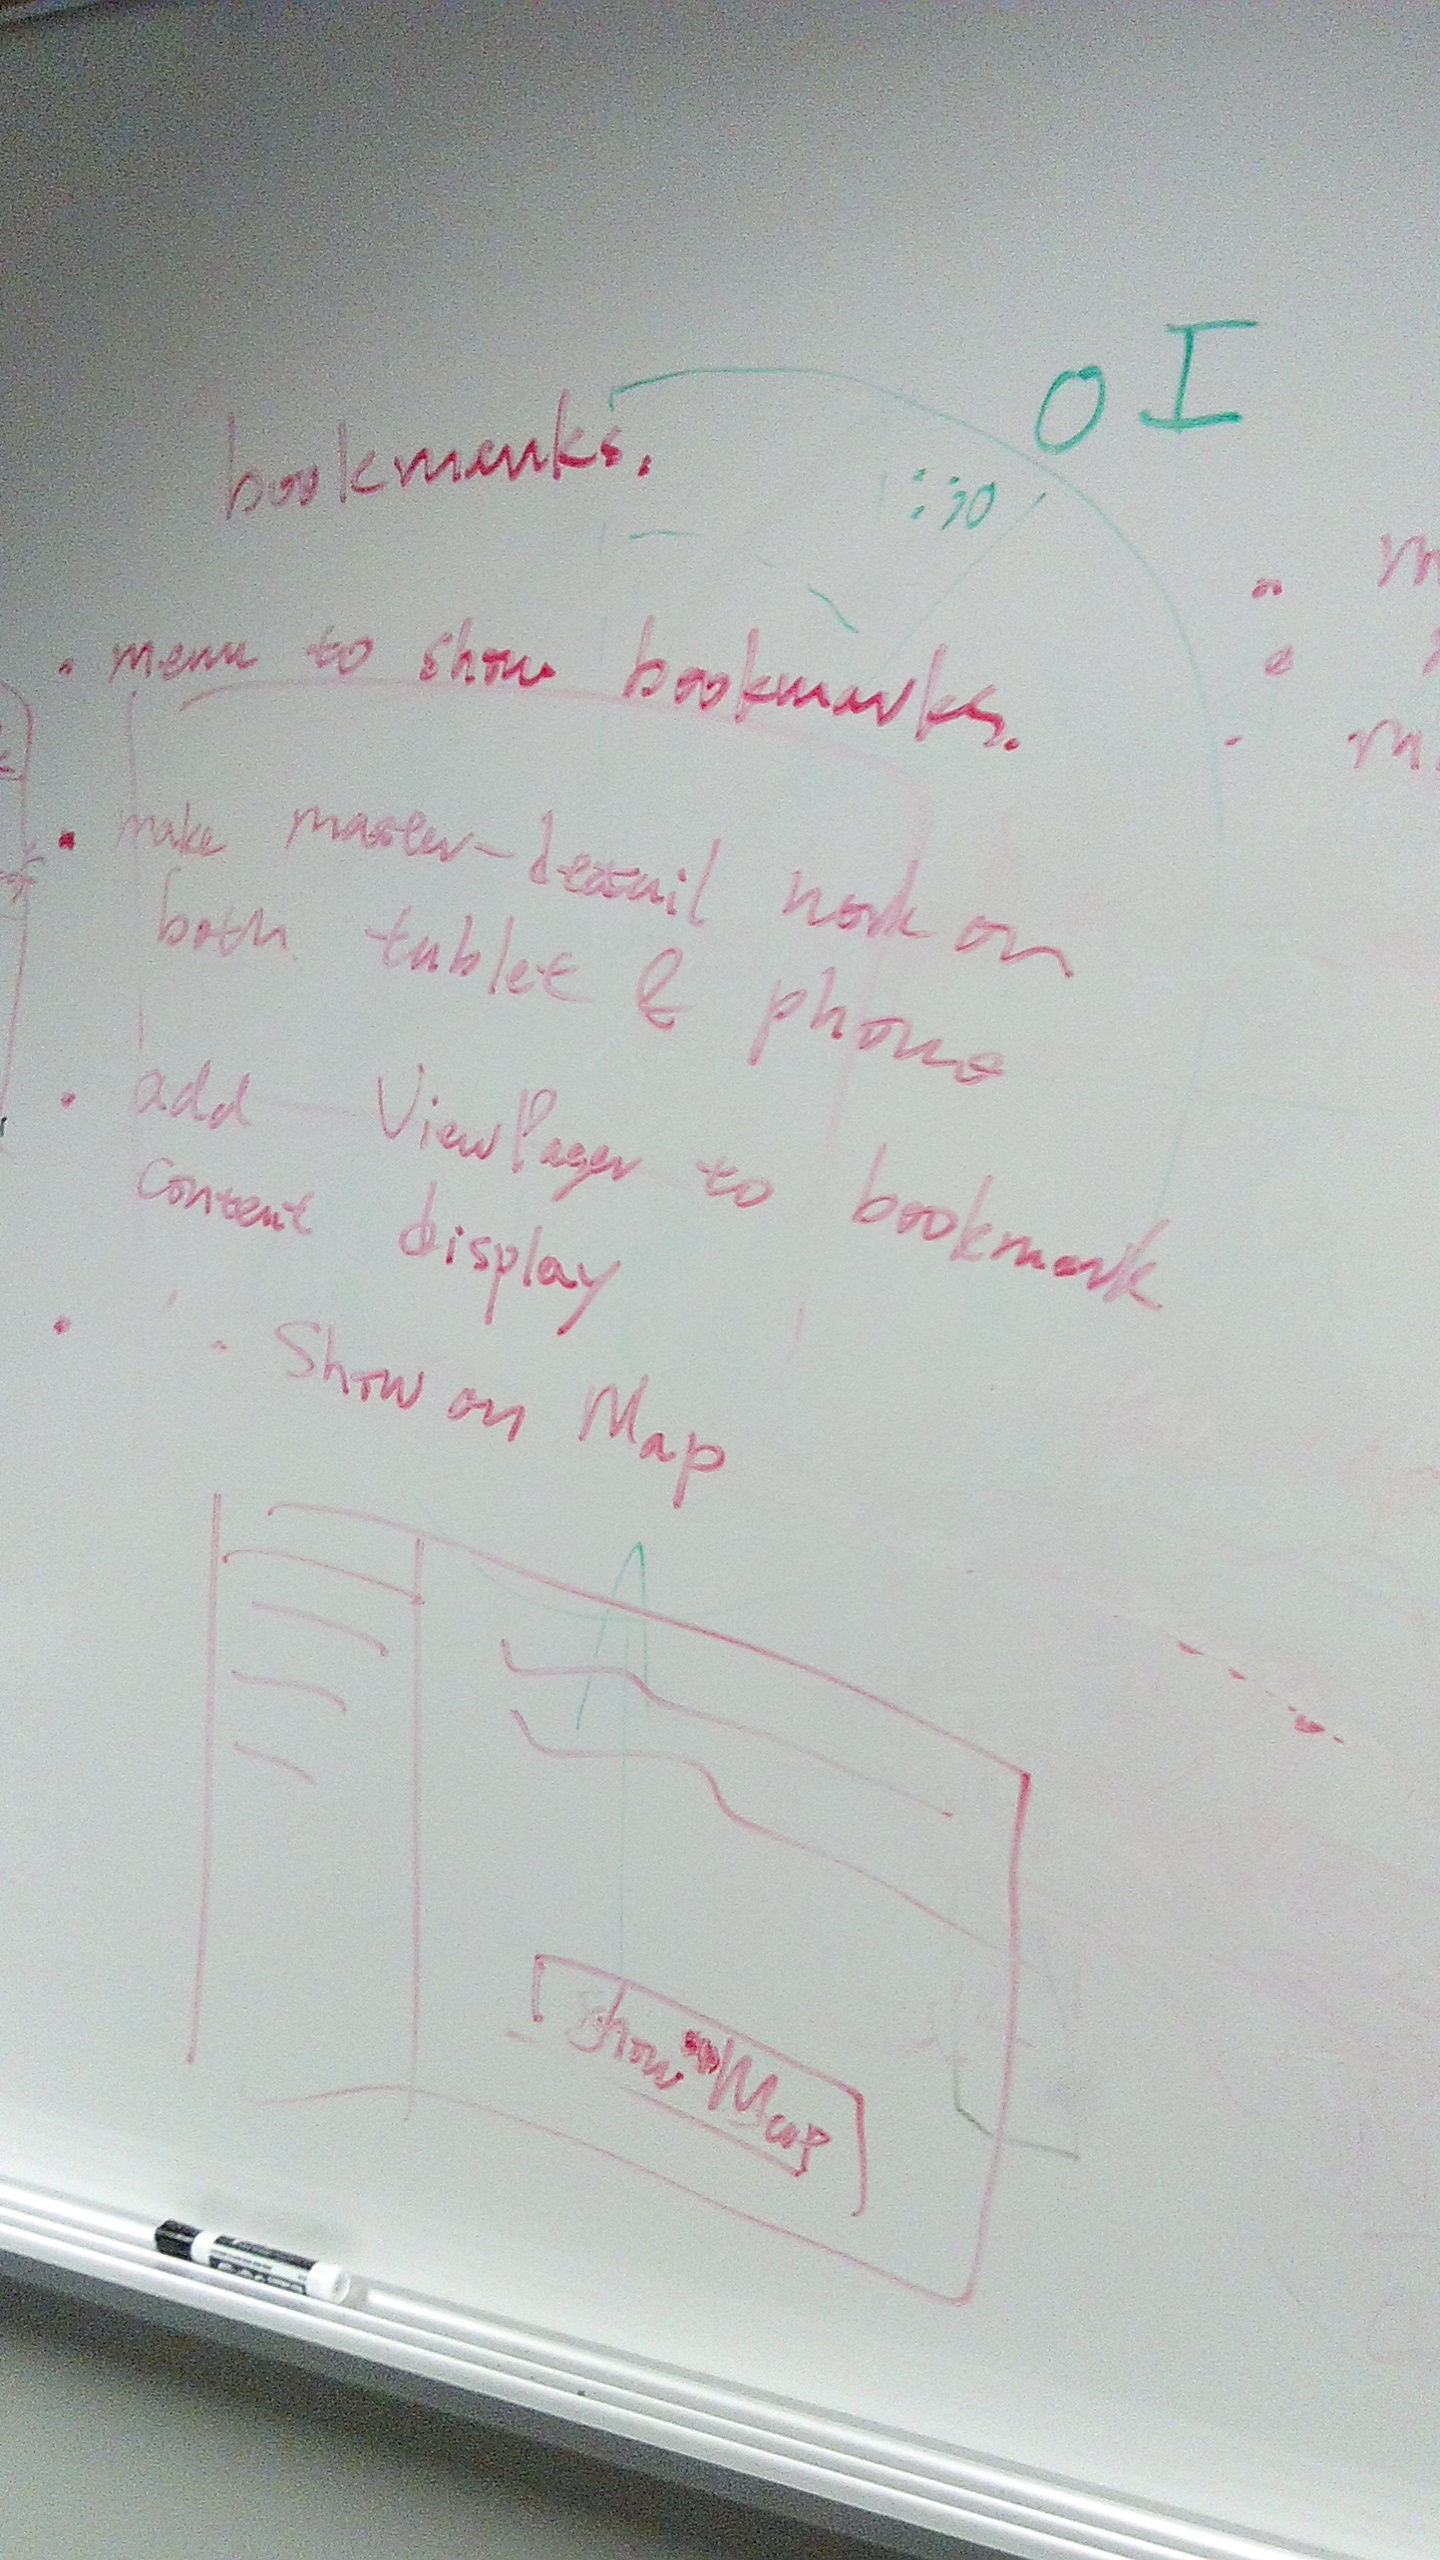 O I
bookmarks.
:30
• menu to show bookmarks.
• make master-detail work on
both tablet & phone
• add ViewPager to bookmark
content display
• - Show on Map
Show on Map